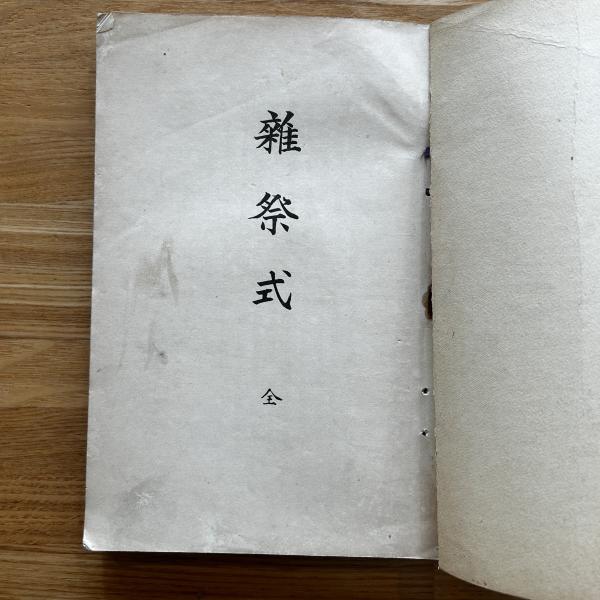 雜祭式
全